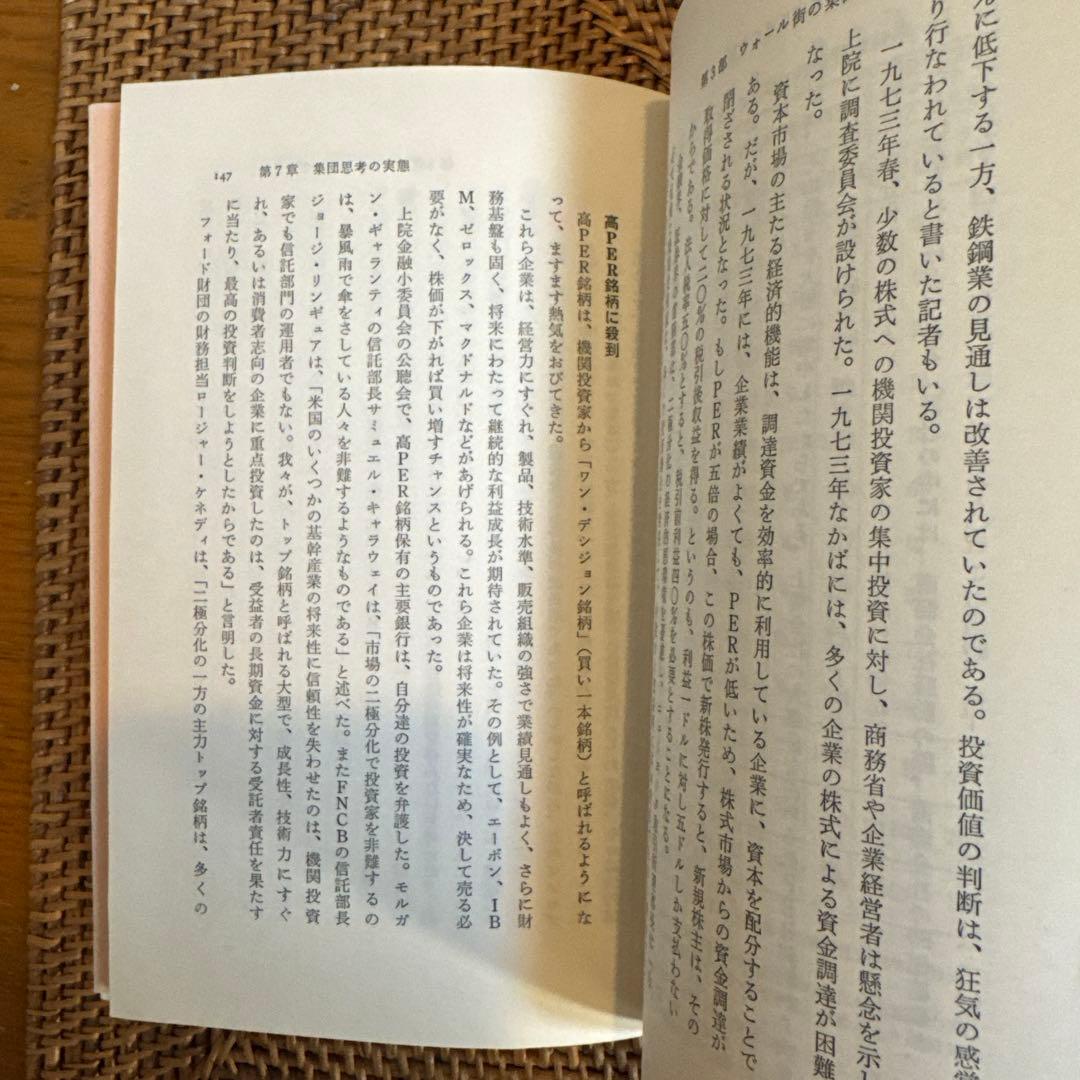 第3部 ウォール街の集
に低下する一方、鉄鋼業の見通しは改善されていたのである。投資価値の判断は、狂気の感覚
り行なわれていると書いた記者もいる。
一九七三年春、少数の株式への機関投資家の集中投資に対し、商務省や企業経営者は懸念を示し
上院に調査委員会が設けられた。一九七三年なかばには、多くの企業の株式による資金調達が困難
なった。
資本市場の主たる経済的機能は、調達資金を効率的に利用している企業に、資本を配分することで
ある。だが、一九七三年には、企業業績がよくても、PERが低いため、株式市場からの資金調達が
閉ざされる状況となった。もしPERが五倍の場合、この株価で新株発行すると、新規株主は、その
取得価格に対して二〇％の税引後収益を得る。というのも、利益一ドルに対し五ドルしか支払わない
からである。法人税率五〇％とすると、税引前利益四〇％を必要とすることになる。
147 第7章 集団思考の実態
高PER銘柄に殺到
高PER銘柄は、機関投資家から「ワン・デシジョン銘柄」（買い一本銘柄）と呼ばれるようにな
って、ますます熱気をおびてきた。
これら企業は、経営力にすぐれ、製品、技術水準、販売組織の強さで業績見通しもよく、さらに財
務基盤も固く、将来にわたって継続的な利益成長が期待されていた。その例として、エーボン、IB
M、ゼロックス、マクドナルドなどがあげられる。これら企業は将来性が確実なため、決して売る必
要がなく、株価が下がれば買い増すチャンスというものであった。
上院金融小委員会の公聴会で、高PER銘柄保有の主要銀行は、自分達の投資を弁護した。モルガ
ン・ギャランティの信託部長サミュエル・キャラウェイは、「市場の二極分化で投資家を非難するの
は、暴風雨で傘をさしている人々を非難するようなものである」と述べた。またFNCBの信託部長
ジョージ・リンギュアは、「米国のいくつかの基幹産業の将来性に信頼性を失わせたのは、機関投資
家でも信託部門の運用者でもない。我々が、トップ銘柄と呼ばれる大型で、成長性、技術力にすぐ
れ、あるいは消費者志向の企業に重点投資したのは、受益者の長期資金に対する受託者責任を果たす
に当たり、最高の投資判断をしようとしたからである」と言明した。
フォード財団の財務担当ロージャー・ケネディは、「二極分化の一方の主力トップ銘柄は、多くの